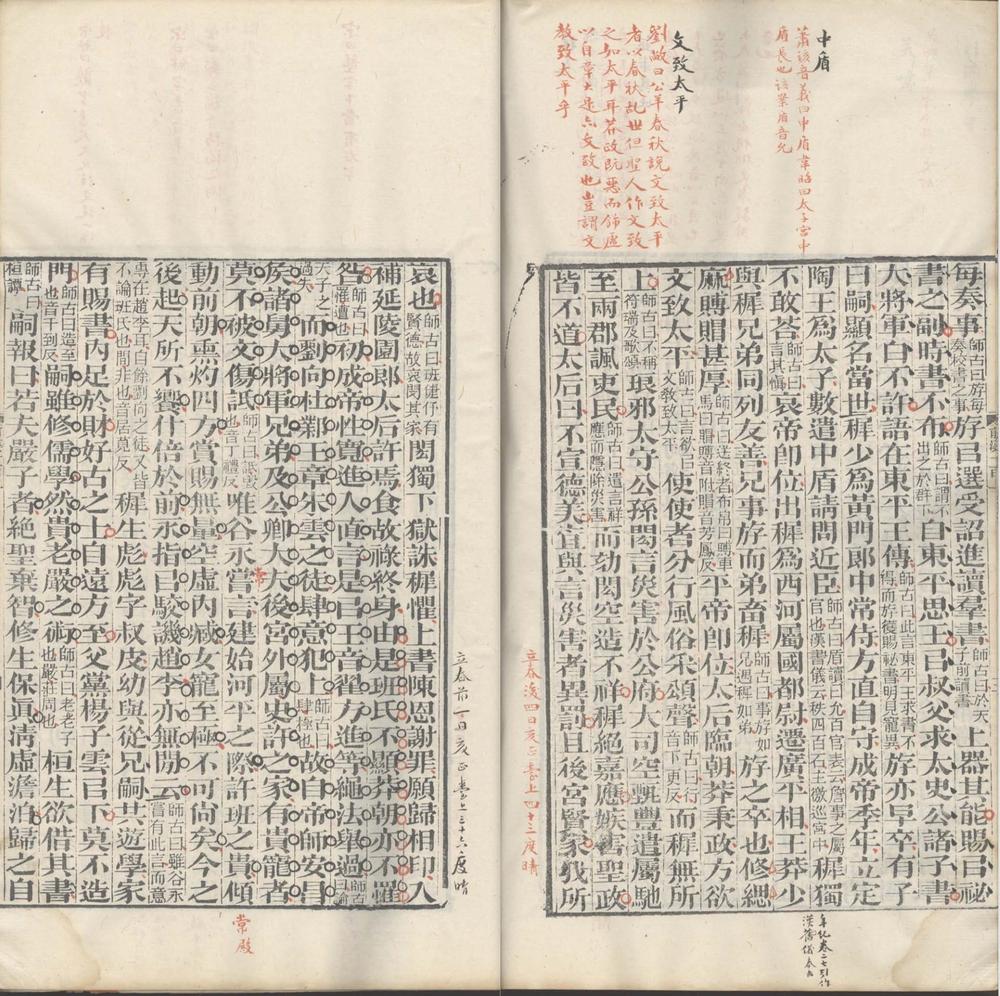 中盾
蕭該音義曰中盾韋昭曰太子宮中
盾長也該案盾音允
文致太平
劉敞曰公羊春秋說文致太平
者以春秋亂世但聖人作文致
之如太平耳莽政既惡而飾虛
以自章大是亦文致也豈謂文
教致太平乎
每奏事師古曰斿每奏校書之事斿㠯選受詔進讀羣書師古曰於天子前讀書上器其能賜㠯祕
書之副時書不布師古曰謂不出之於群下自東平思王㠯叔父求太史公諸子書
大將軍白不許語在東平王傳師古曰此言東平王求書不得而斿獲賜祕書明見寵異斿亦早卒有子
曰嗣顯名當世穉少爲黃門郎中常侍方直自守成帝季年立定
陶王爲太子數遣中盾請問近臣師古曰盾讀曰允百官表云詹事之屬官也漢書儀云秩四百石主徼巡宮中穉獨
不敢荅師古曰言其愼哀帝卽位出穉爲西河屬國都尉遷廣平相王莽少
與穉兄弟同列友善兄事斿而弟畜穉師古曰事斿如兄遇穉如弟斿之卒也修緦
麻賻賵甚厚師古曰送終者布帛曰賻車馬曰賵賻音附賵音芳鳳反平帝卽位太后臨朝莽秉政方欲
文致太平師古曰言欲㠯文敎致太平使使者分行風俗采頌聲師古曰行音下更反而穉無所
上師古曰不稱符瑞及歌頌琅邪太守公孫閎言災害於公府大司空甄豐遣屬馳
至兩郡諷吏民師古曰遣言祥應而隱除災害而劾閎空造不祥穉絕嘉應嫉害聖政
皆不道太后曰不宣德美宜與言災害者異罰且後宮賢家我所
年紀卷二七引作
漢舊儀
立春後四日亥正書上四十三度晴
哀也師古曰班倢伃有賢德故哀閔其家閎獨下獄誅穉懼上書陳恩謝罪願歸相印入
補延陵園郎太后許焉食故祿終身由是班氏不顯莽朝亦不罹
咎師古曰罹遭也初成帝性寬進入直言是㠯王音翟方進等繩法舉過師古曰論天子之過失
而劉向杜鄴王章朱雲之徒肆意犯上師古曰肆極也故自帝師安昌
矦諸舅大將軍兄弟及公卿大夫後宮外屬史許之家有貴寵者
莫不被文傷詆師古曰詆毀也音丁禮反唯谷永嘗言建始河平之際許班之貴傾
動前朝熏灼四方賞賜無量空虛內臧女寵至極不可尚矣今之
後起天所不饗什倍於前永指㠯駮譏趙李亦無閒云師古曰雖谷永嘗有此言而意專在趙李耳自餘劉向之徒又皆不論班氏也閒非也音居莧反
穉生彪彪字叔皮幼與從兄嗣共遊學家
有賜書內足於財好古之士自遠方至父黨楊子雲㠯下莫不造
門師古曰造至也音千到反嗣雖修儒學然貴老嚴之術師古曰老老子也嚴莊周也桓生欲借其書師古曰桓譚
嗣報曰若夫嚴子者絕聖棄智修生保眞淸虛澹泊歸之自
常
常殿
立春前一日亥正書上三十六度晴